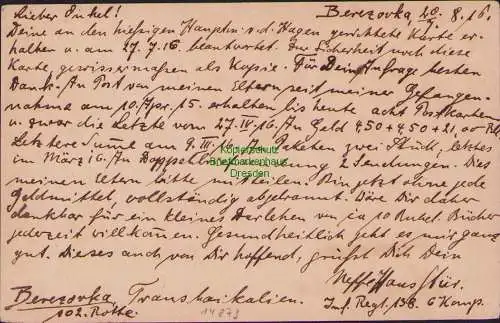 Berezovka, 20. 8. 16.
Lieber Onkel!
Deine an den hiesigen Hauptm. v. d. Hagen gerichtete Karte er-
halten u. am 27. 7. 16 beantwortet. Zur Sicherheit noch diese
Karte, gewissermaßen als Kopie. Für Dein Anfrage besten
Dank. An Post von meinen Eltern seit meiner Gefangen-
nahme am 10. Apr. 15. erhalten bis heute acht Postkarten
u. zwar die letzte vom 27. IV. 16. An Geld 450 + 450 + 21,00
Letztere am 9. III. Paketen zwei Stück, letztes
im März 16. An 2 Sendungen. Dies
meinen Eltern bitte mitteilen. Bin jetzt ohne jede
Geldmittel, vollständig abgebrannt. Wäre Dir daher
dankbar für ein kleines Darlehen von ca 10 Rubel. Bücher
jederzeit willkommen. Gesundheitlich geht es mir ganz
gut. Dieses auch von Dir hoffend, grüßt Dich Dein
Neffe Hans
Berezovka, Transbaikalien. Inf. Regt. 138. 6 Komp.
102. Rotte. 14273
Kopierschutz
Briefmarkenhaus
Dresden